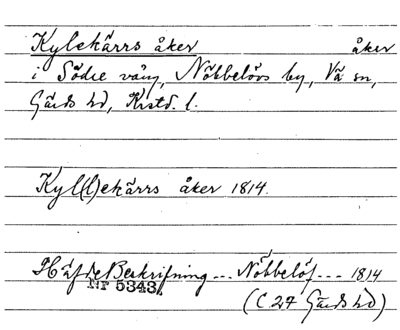 Kylekärrs åker åker
i Södre vång, Nöbbelövs by, Vä sn,
Gärds hd, Krstd. l.
Kyl(l)ekärrs åker 1814.
Häfde Beskrifning --- Nöbbelöf --- 1814
Nr 5343.
(C 27 Gärds hd)